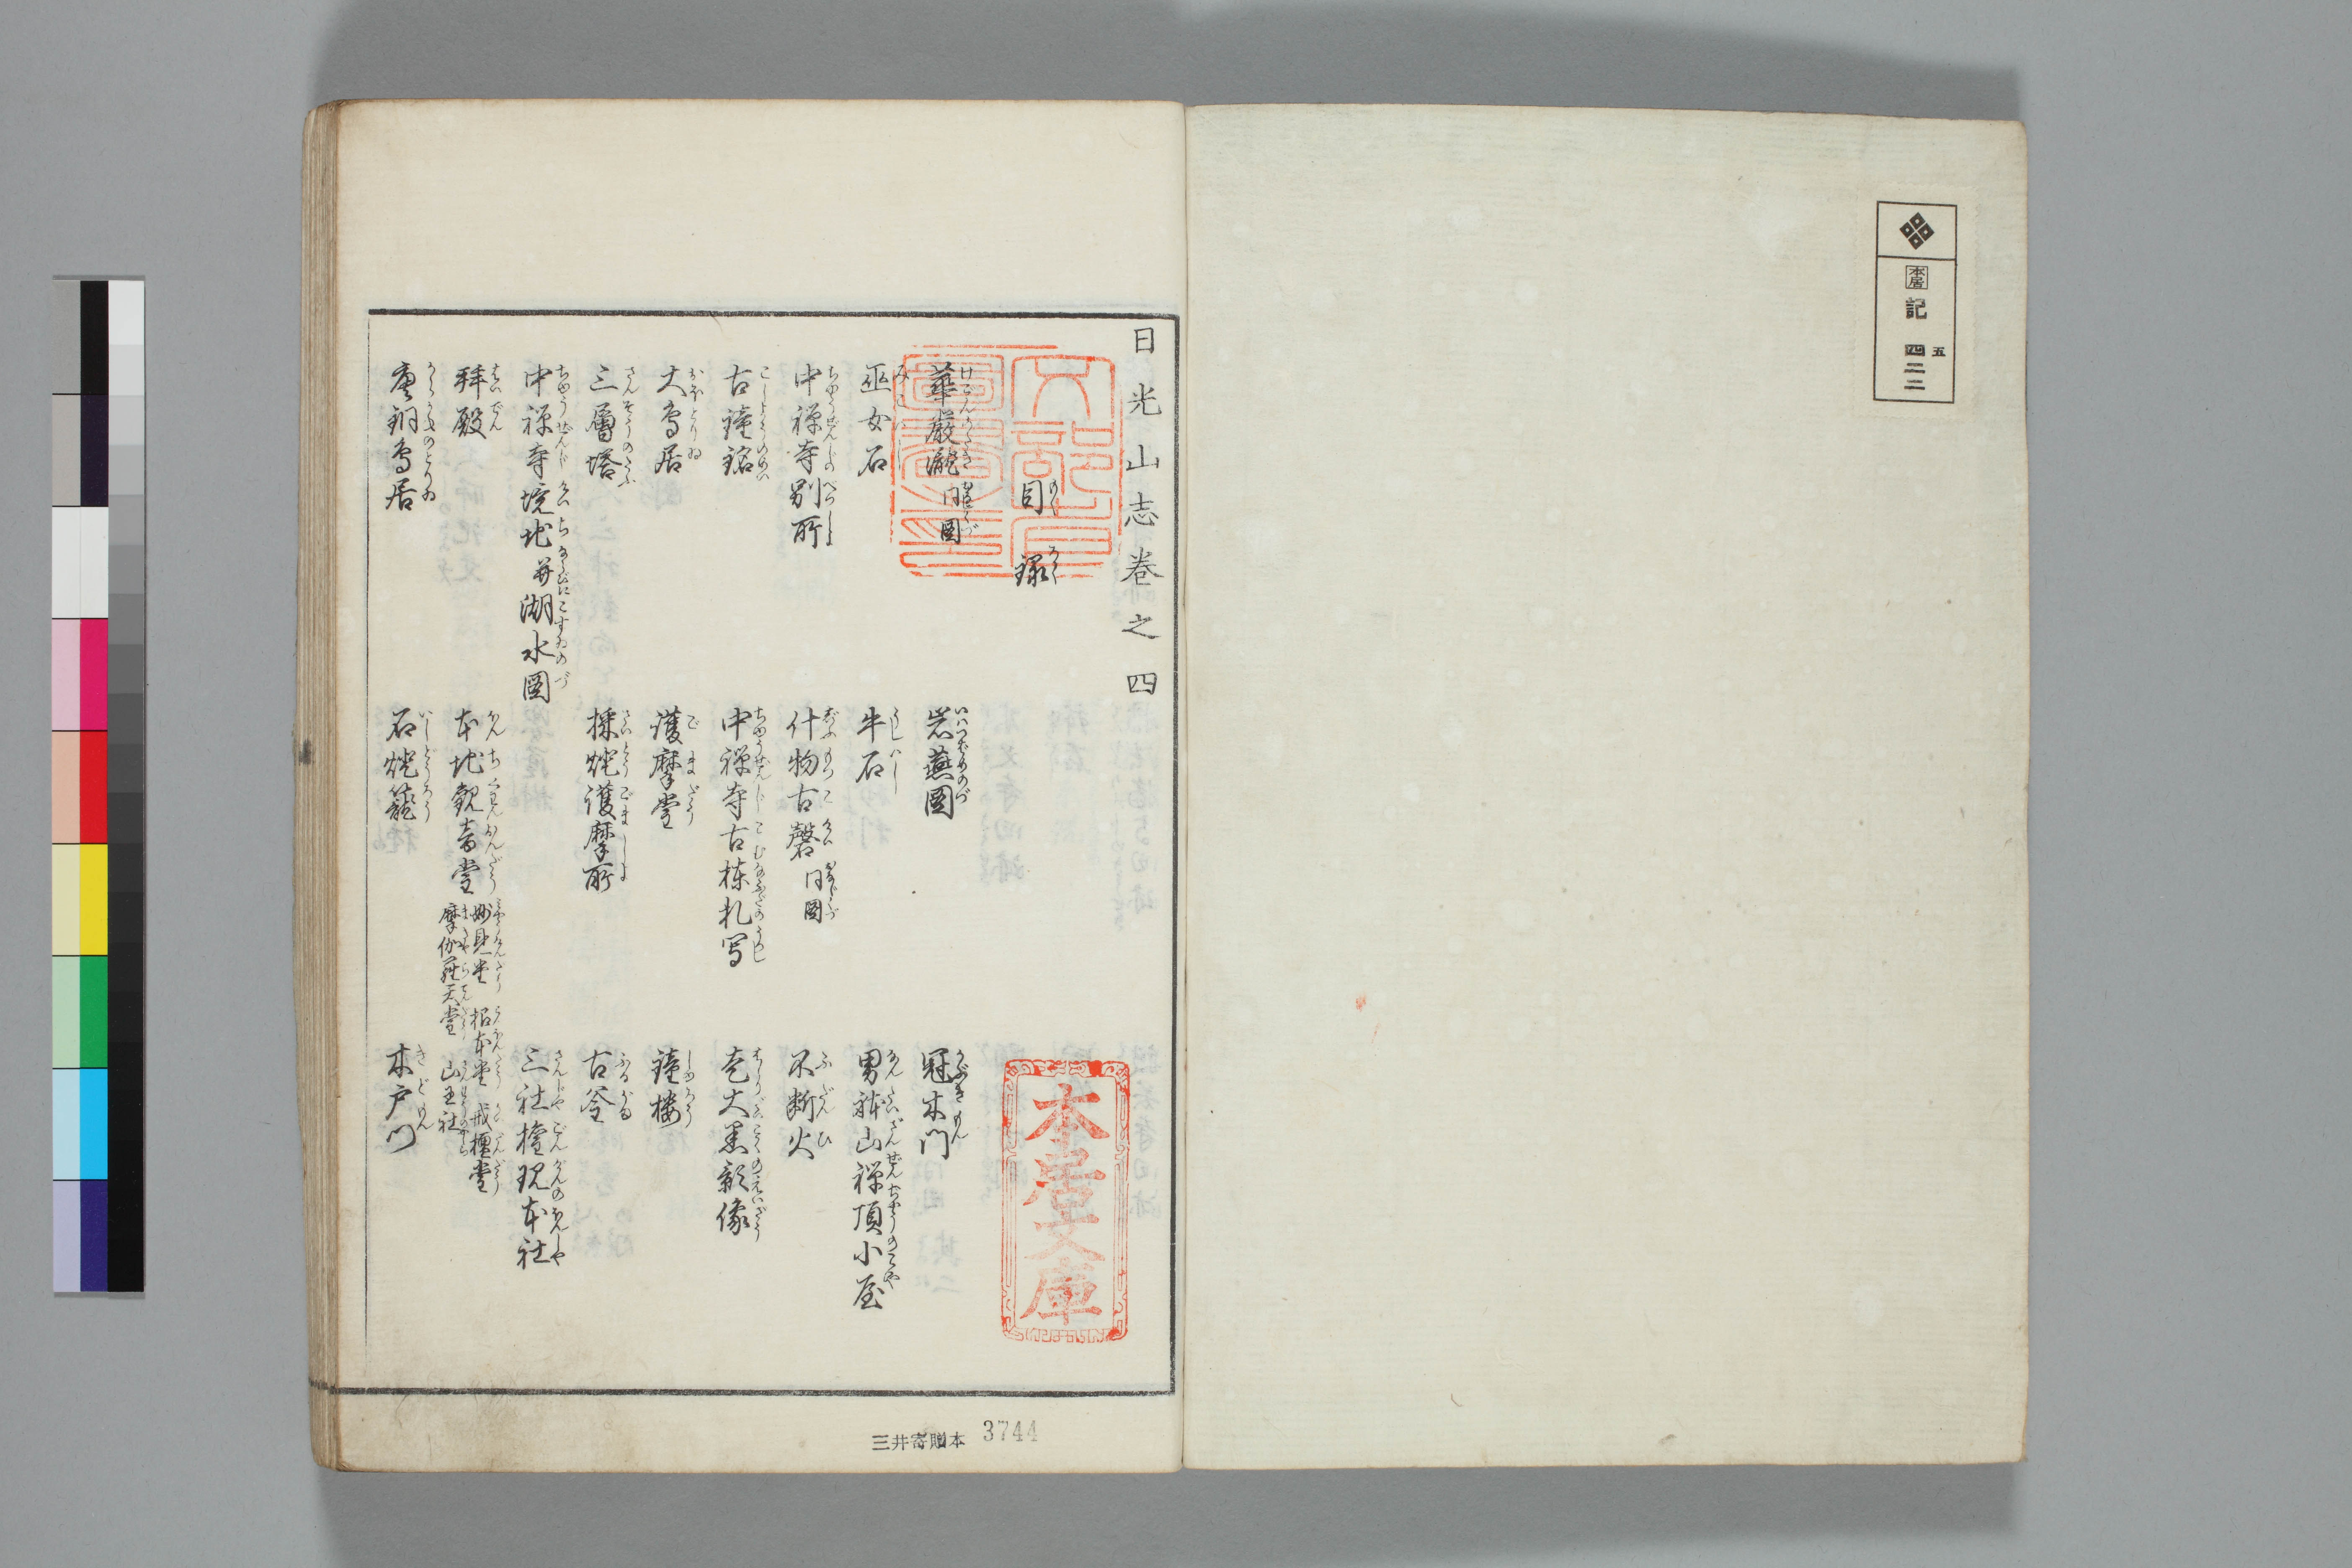 本居
記
五
四二二
日光山志巻之四
目録
華厳瀧 同図
岩燕図
冠木門
巫女石
牛石
男体山禅頂小屋
中禅寺別所
什物古磬 同図
不断火
古鐘銘
中禅寺古棟札写
走大黒影像
大鳥居
護摩堂
鐘楼
三層塔
採灯護摩所
古釜
中禅寺境地并湖水図
三社権現本社
拝殿
本地観音堂 妙見堂 根本堂 戒壇堂
摩伽羅天堂 山王社
唐銅鳥居
石灯籠
木戸門
本居文庫
三井寄贈本 3744